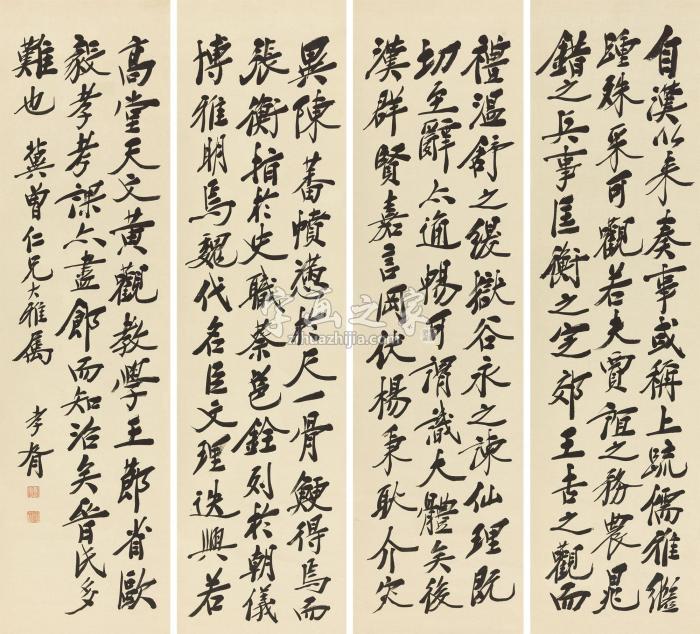 自漢以来奏事或稱上疏儒雅繼
踵殊采可觀若夫賈誼之務農晁
錯之兵事匡衡之定郊王吉之觀而
禮温舒之緩獄谷永之諫仙理既
切至辭亦通暢可謂識大體矣後
漢群賢嘉言罔伏楊秉耿介灾
異陳蕃憤懣於尺一骨鯁得焉而
張衡指於史職蔡邕銓列於朝儀
博雅明焉魏代名臣文理迭興若
高堂天文黄觀教學王省
毅孝考課亦盡節而知治矣晉氏多
難也 冀曾仁兄大雅属
孝胥
字画之家
zihuazhijia.com